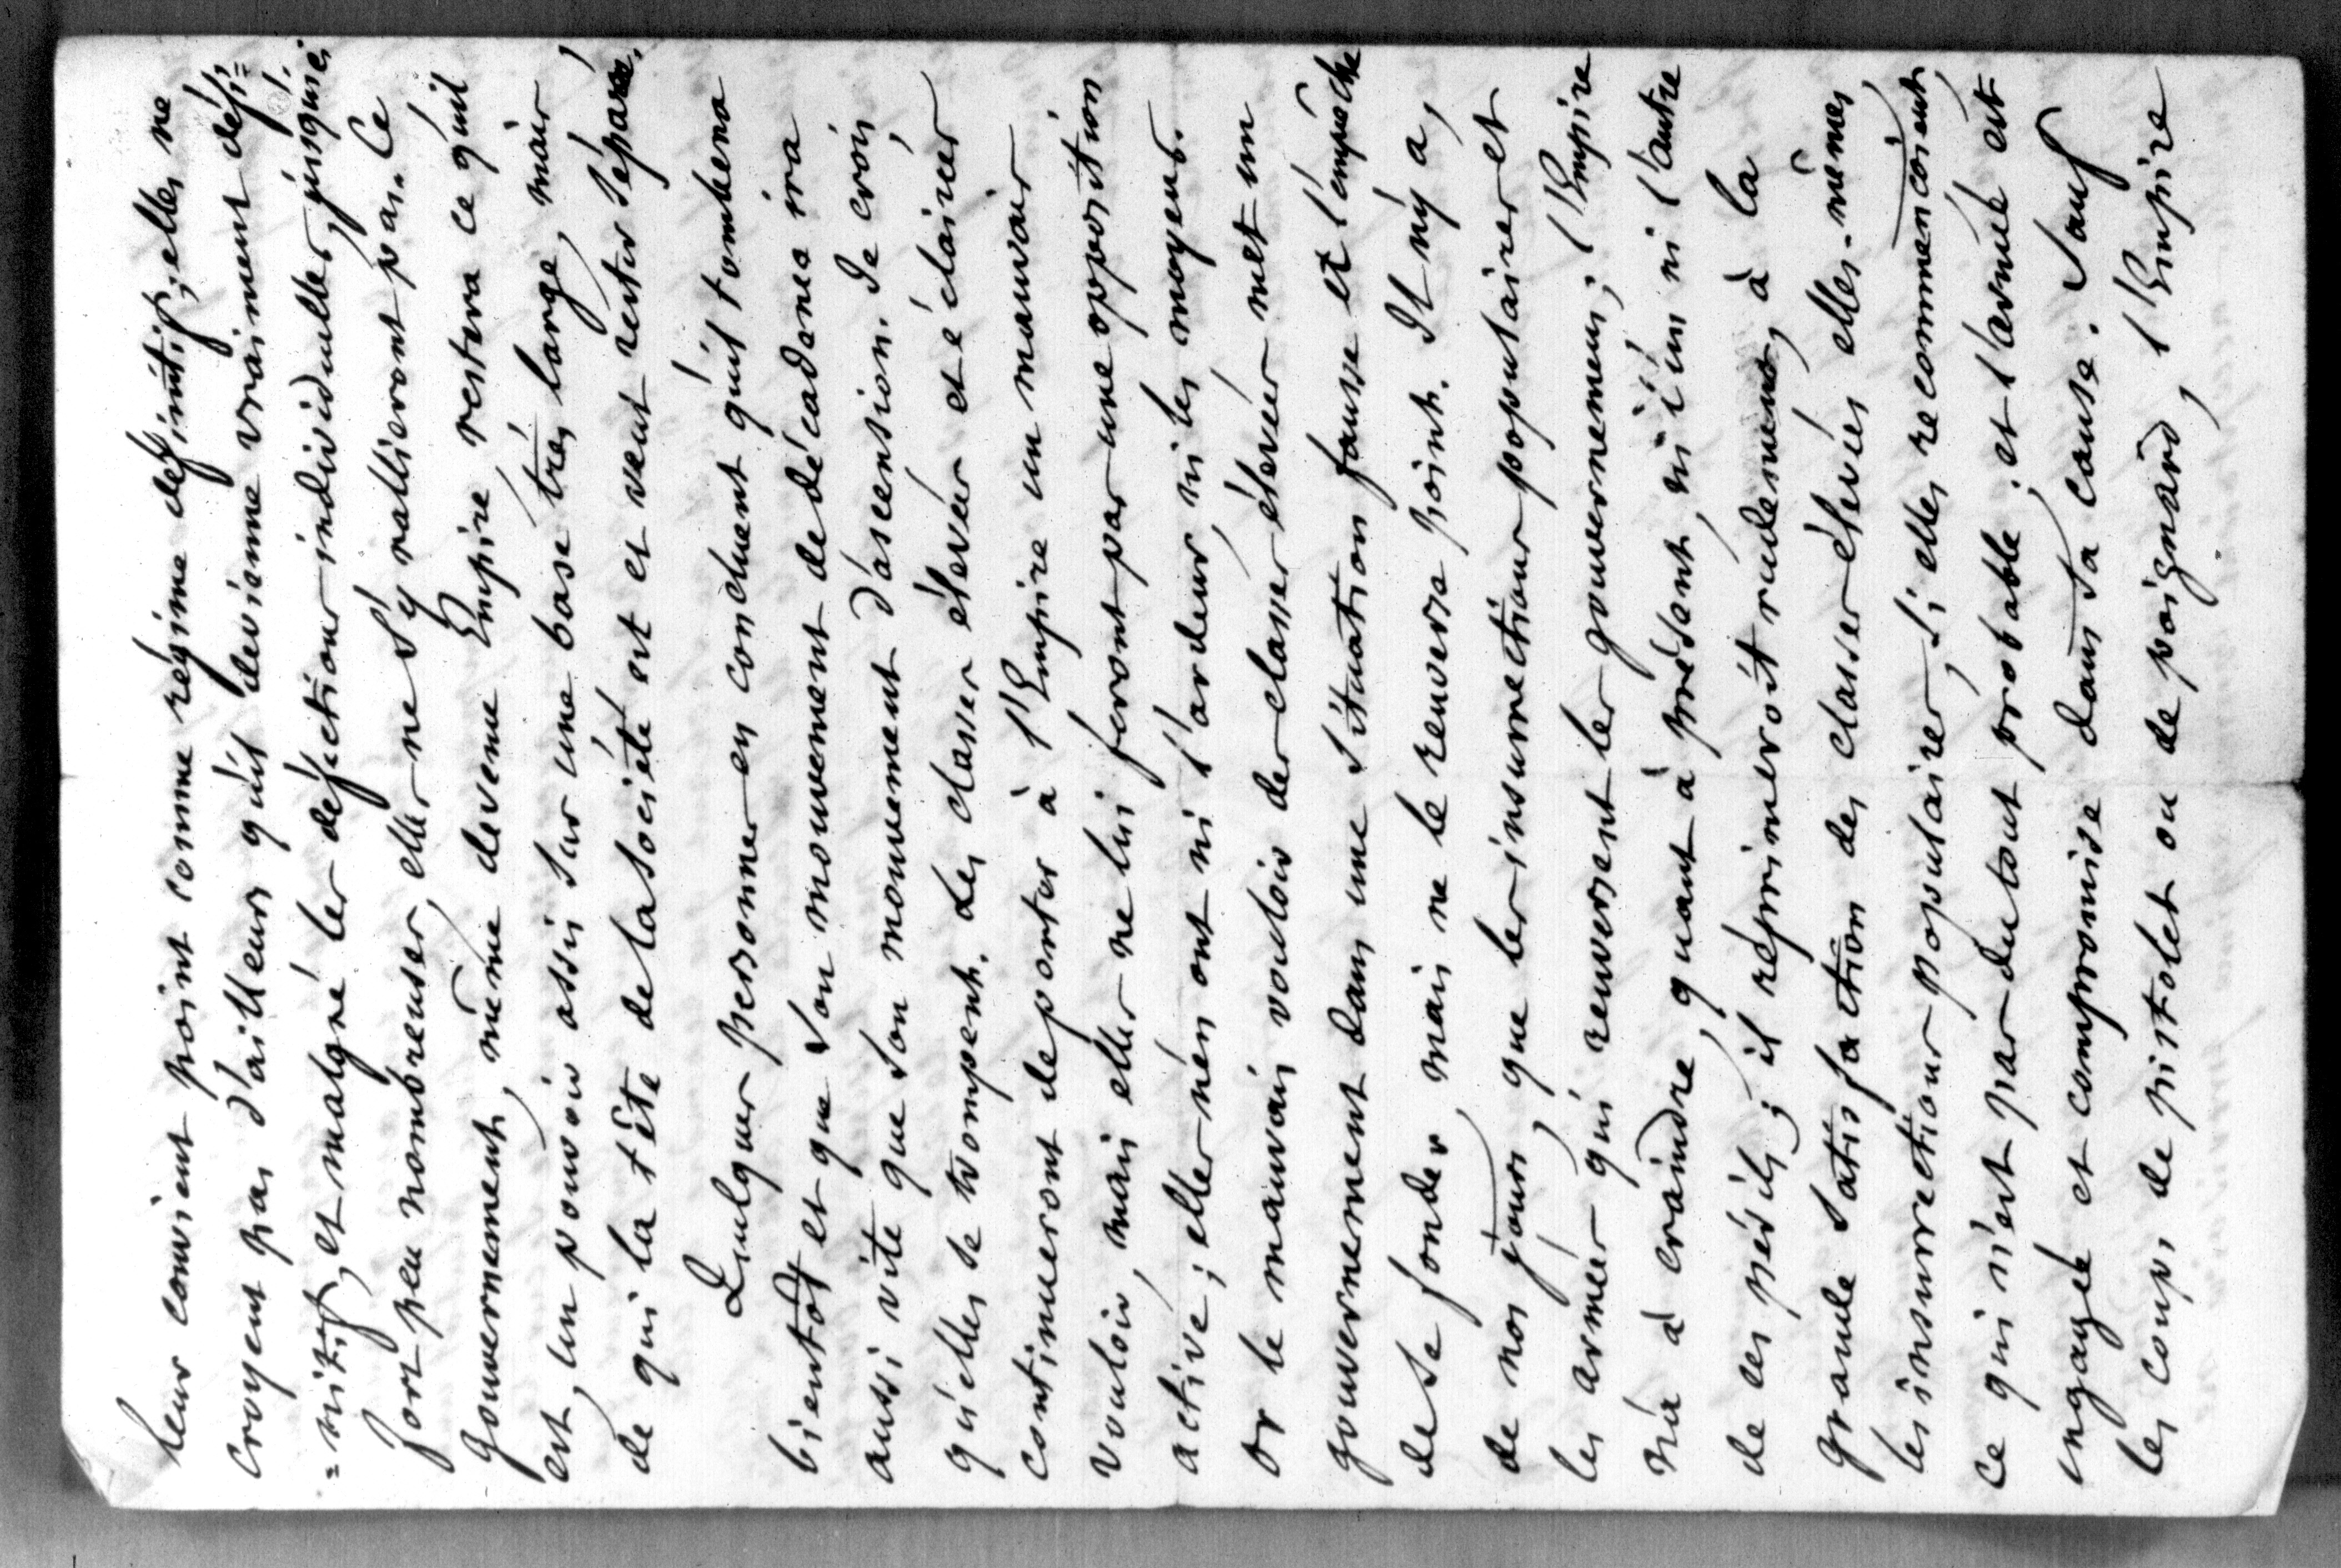 leur convient point comme régime définitif; elles ne
croyent pas d'ailleurs qu'il devienne vraiment défi=
=nitif, et malgré les défections individuelles, jusqu'ici
fort peu nombreuses, elles ne s'y rallieront pas. Ce
gouvernement, même devenu Empire, restera ce qu'il
est, un pouvoir assis sur une base très large, mais
de qui la tête de la société est et veut rester séparée.
Quelques personnes en concluent qu'il tombera
bientôt et que son mouvement de décadence ira
aussi vite que son mouvement d'ascension. Je crois
qu'elles se trompent. Les classes élevées et éclairées
continueront de porter à l'Empire un mauvais
vouloir, mais elles ne lui feront pas une opposition
active; elles n'en ont ni l'ardeur, ni les moyens.
Or le mauvais vouloir des classes élevées met un
gouvernement dans une situation fausse et l'empêche
de se fonder, mais ne le renverse point. Il n'y a,
de nos jours, que les insurrections populaires et
les armées qui renversent les gouvernemens; l'Empire
n'a à craindre, quant à présent, ni l'un ni l'autre
de ces périls; il réprimeroit rudement, à la
grande satisfaction des classes élevées elles-mêmes,
les insurrections populaires, si elles recommençoient,
ce qui n'est pas du tout probable; et l'armée est
engagée et compromise dans sa cause. Sauf
les coups de pistolet ou de poignard, l'Empire